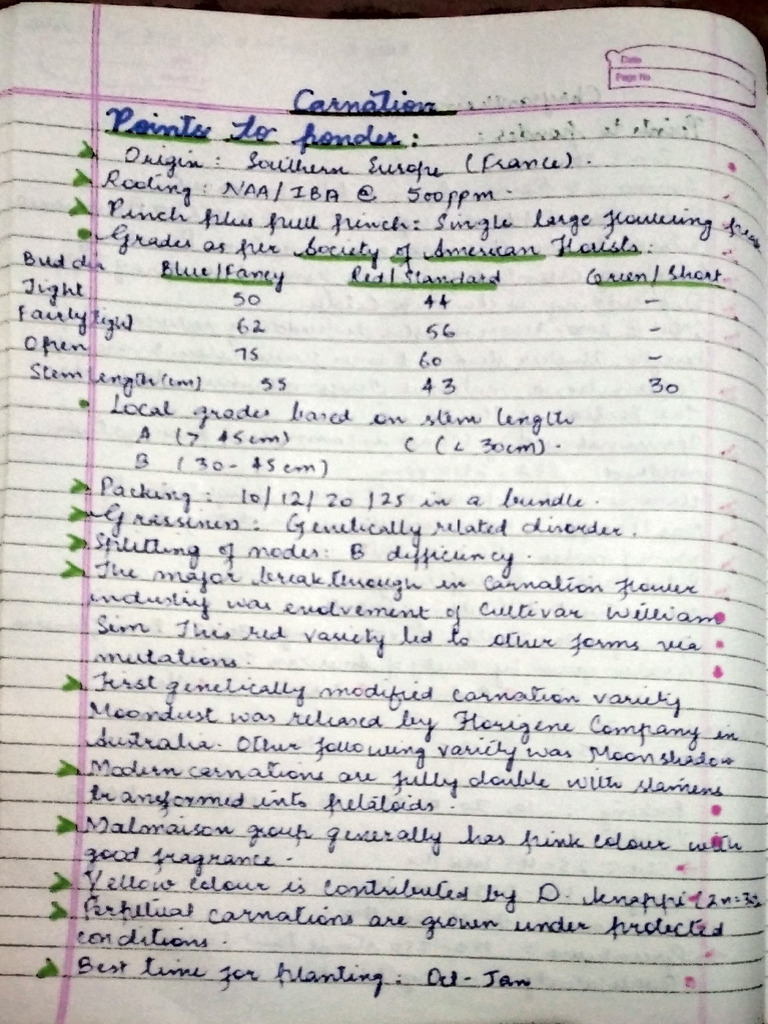 Date
Page No
Carnation
Points to ponder:
Origin: Southern Europe (France).
Rooting: NAA/IBA @ 500ppm.
Pinch plus pull pinch: Single large flowering
Grades as per Society of American Florists:
Bud dia Blue/Fancy Red/Standard Green/Short
Tight 50 44 -
Fairly tight 62 56 -
Open 75 60 -
Stem length (cm) 55 43 30
Local grades based on stem length
A (> 45cm) C (< 30cm).
B (30-45cm)
Packing: 10/12/20/25 in a bundle.
Grassiness: Genetically related disorder.
Splitting of nodes: B difficiency.
The major breakthrough in Carnation flower
industry was evolvement of Cultivar William
Sim. This red variety led to other forms via
mutations.
First genetically modified carnation variety
Moondust was released by Florigene Company in
Australia. Other following variety was Moonshadow
Modern carnations are fully double with stamens
transformed into petaloids.
Malmaison group generally has pink colour with
good fragrance.
Yellow colour is contributed by D. knappi (2n=30
Perpetual carnations are grown under protected
conditions.
Best time for planting: Oct-Jan